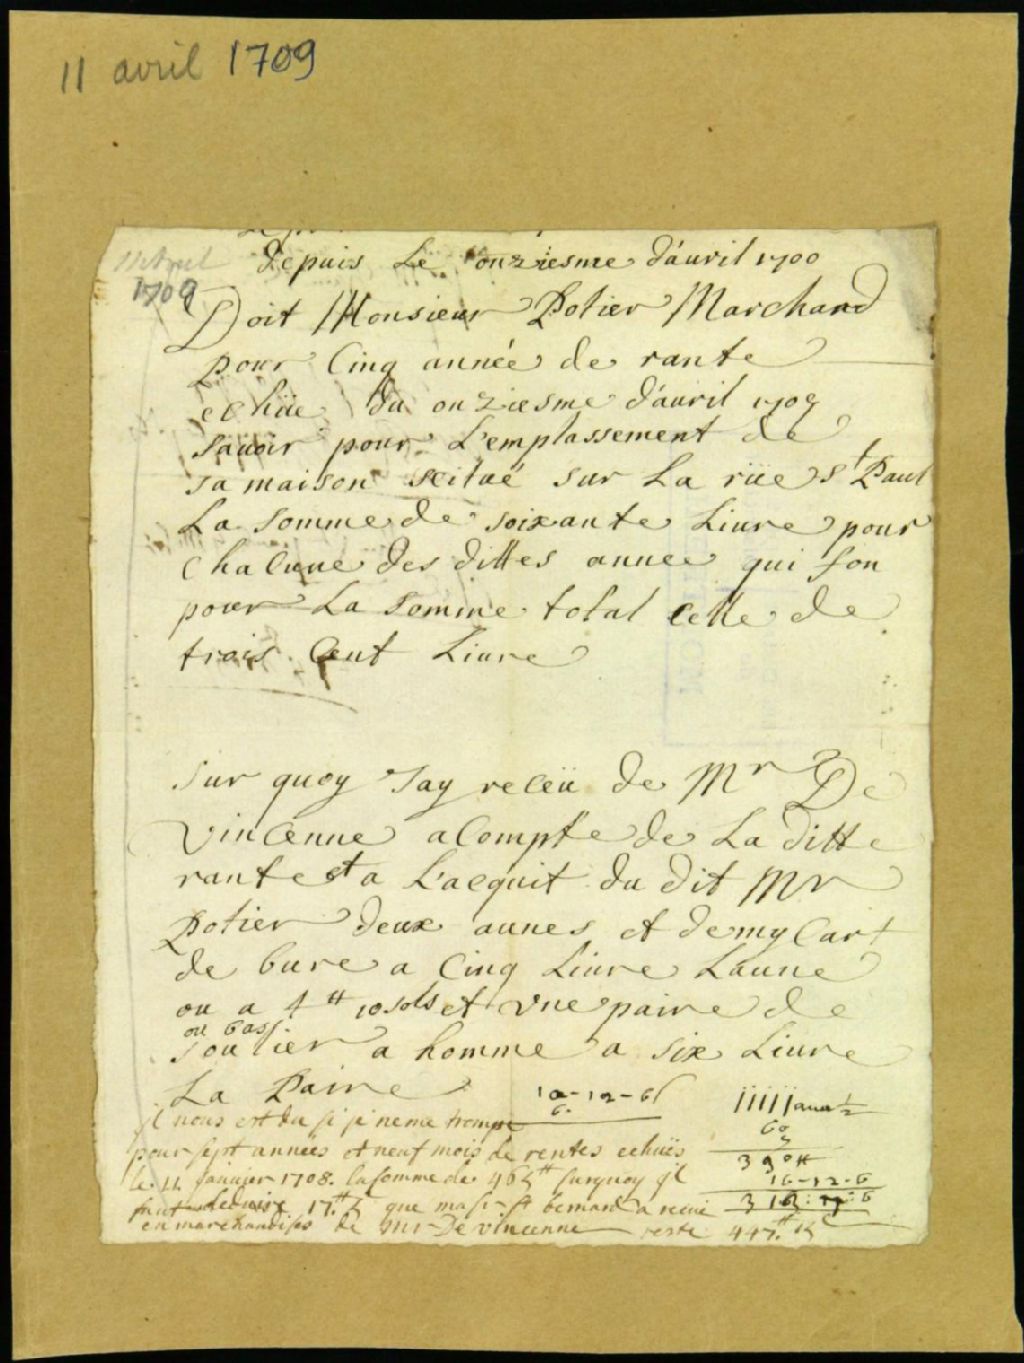 11 avril 1709
11 Avril
1709
depuis Le onziesme d'auril 1700
Doit Monsieur Potier Marchand
pour Cinq année de rante
echüe du onziesme d'auril 1709
sauoir pour L'emplassement de
sa maison scitué sur La rüe St Paul
La somme de soixante Liure pour
chacune des dittes annee qui fon
pour La somme total Celle de
trois Cent Liure
sur quoy Jay receü de Mr De
Vincenne a Compte de La ditte
rante et a L'acquit du dit Mr
Potier deux aunes et demy Cart
de bure a Cinq Liure L'aune
ou a 4tt 10 sols et vne paire de
ou bas
soulier a homme a six Liure
La Paire
10-12-6
6
il nous est du si je ne me trompe
pour sept années et neuf mois de rentes echües
le 11 Janvier 1708. la somme de 465tt surquoy il
faut deduire 17tt 5 que ma sr st bernard a recüe
en marchandises de Mr De Vincenne reste 447tt 15
60
390tt
16-12-6